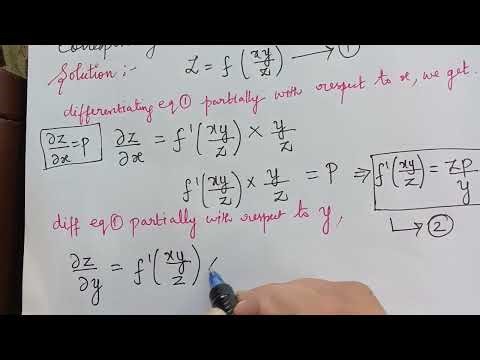 Solution :- z = f(xy/z) → ①
differentiating eq ① partially with respect to x, we get.
∂z/∂x = p ∂z/∂x = f'(xy/z) × y/z
f'(xy/z) × y/z = p ⇒ f'(xy/z) = zp/y
→ ②
diff eq ① partially with respect to y,
∂z/∂y = f'(xy/z)